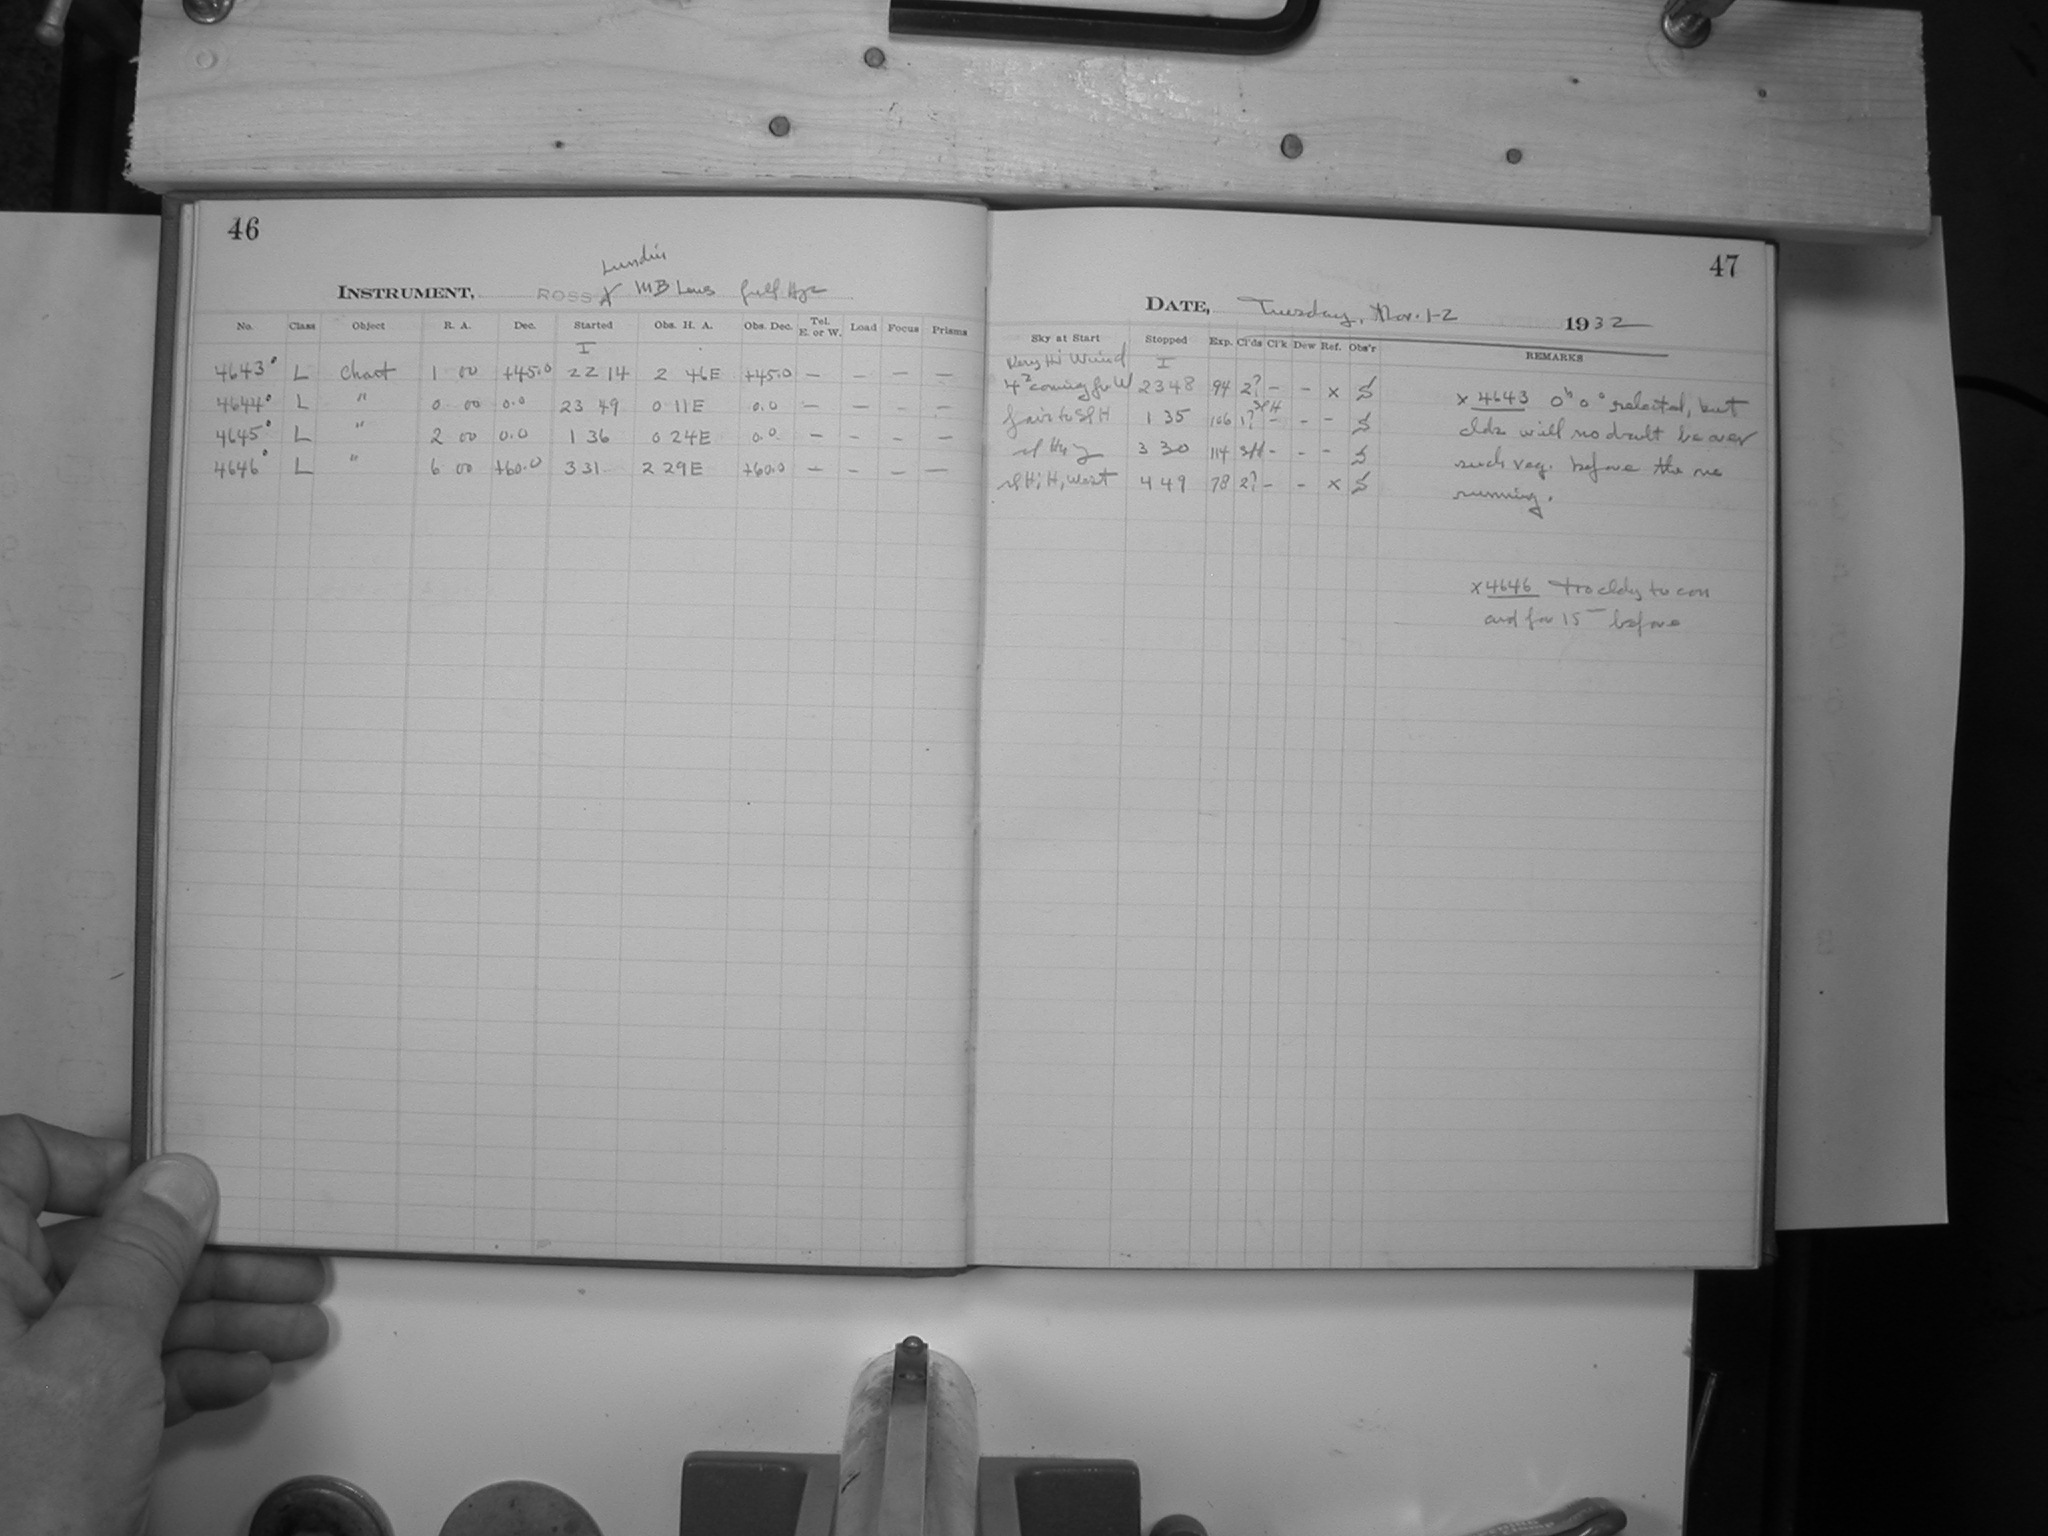 46
Lundin
INSTRUMENT, ROSS MB Lens full Hyp
No. Class Object R. A. Dec. Started Obs. H. A. Obs. Dec. Tel. E. or W. Load Focus Prisms
I
4643° L Chart 1 00 +45.0 22 14 2 46E +45.0 — — — —
4644° L " 0 00 0.0 23 49 0 11E 0.0 — — — —
4645° L " 2 00 0.0 1 36 0 24E 0.0 — — — —
4646° L " 6 00 +60.0 3 31 2 29E +60.0 — — — —
47
DATE, Tuesday, Nov. 1-2 1932
Sky at Start Stopped Exp. Cl'ds Cl'k Dew Ref. Obs'r REMARKS
Very Hi Wind I
4² coming fr W 23 48 94 2? — — x
fair to Sl H 1 35 106 1? Sl H — — —
sl Hzy 3 30 114 SlH — — —
sl Hi H, West 4 49 78 2? — — x
x 4643 0ʰ 0° selected, but
clds will no doubt be over
such reg. before the
running.
x 4646 Too cldy to con
and for 15 before